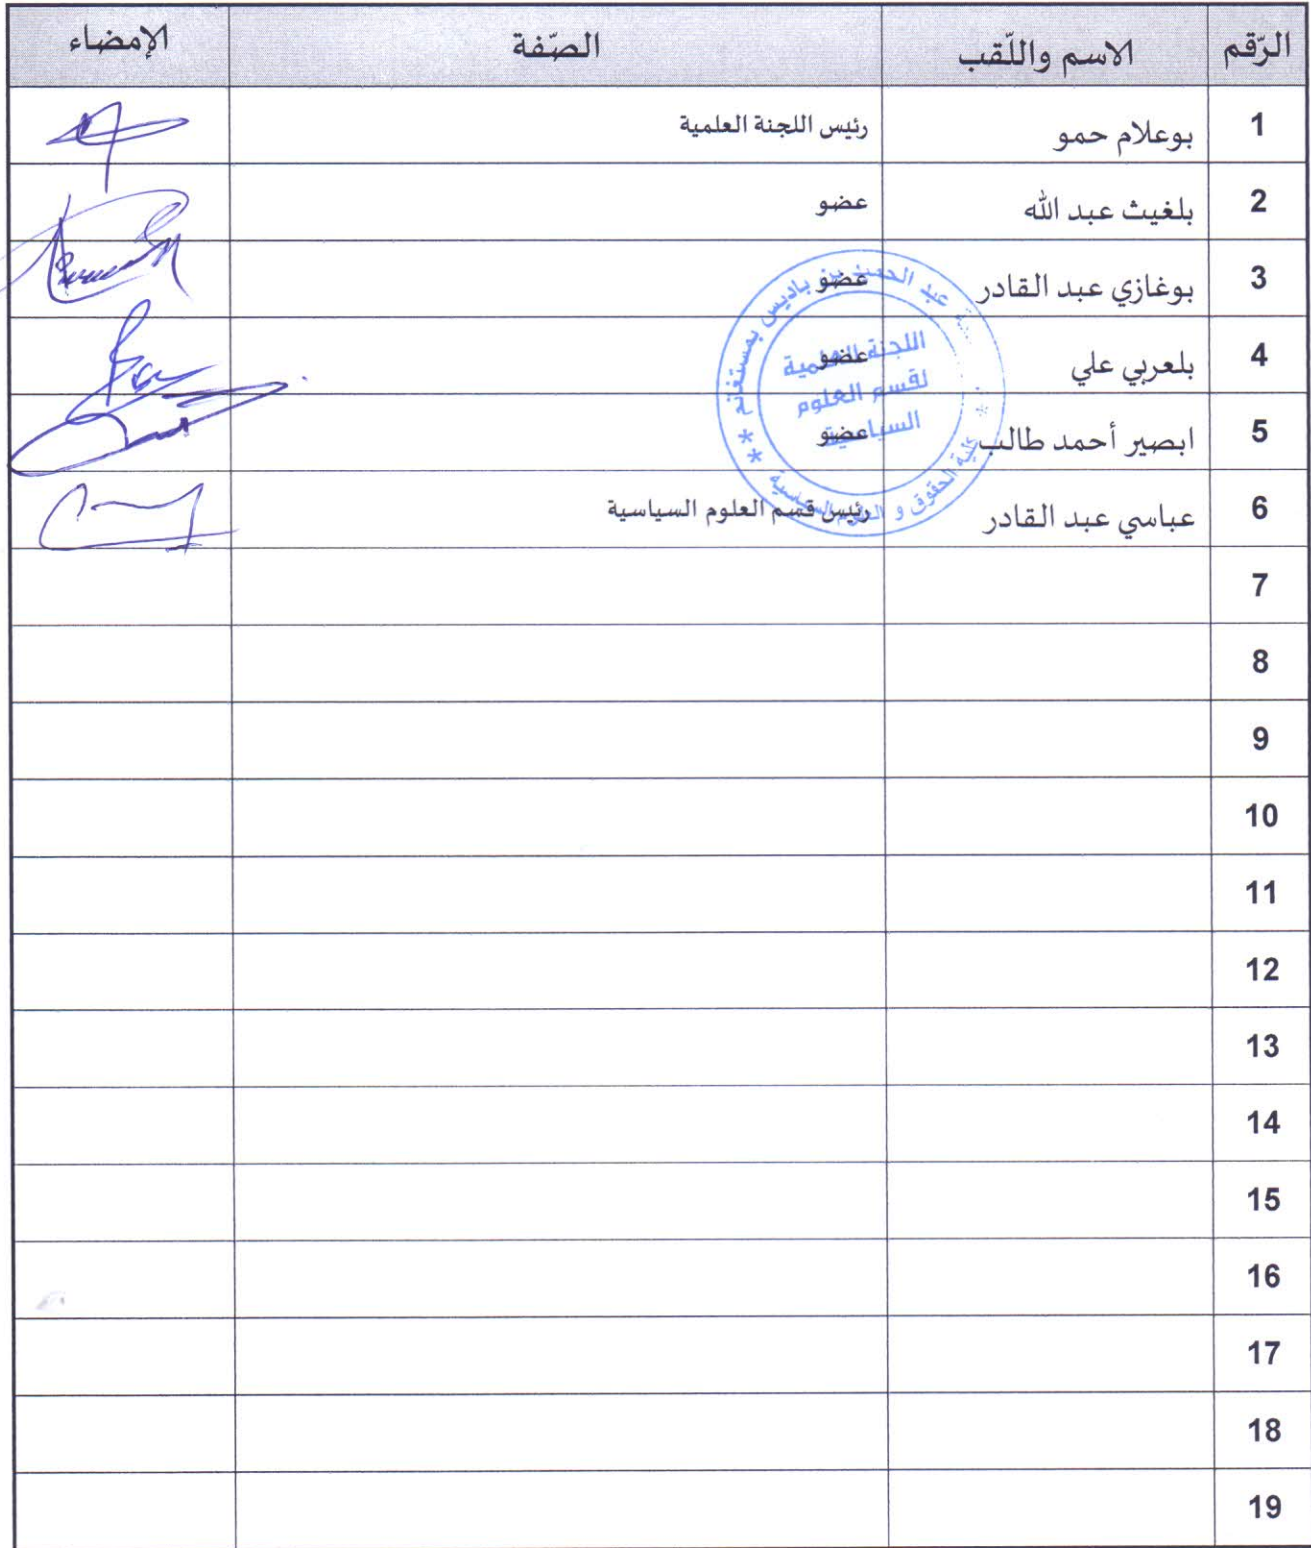 الرّقم الاسم واللّقب الصّفة الإمضاء
1 بوعلام حمو رئيس اللجنة العلمية
2 بلغيث عبد الله عضو
3 بوغازي عبد القادر عضو
4 بلعربي علي عضو
5 ابصير أحمد طالب عضو
6 عباسي عبد القادر رئيس قسم العلوم السياسية
7
8
9
10
11
12
13
14
15
16
17
18
19
عبد الحميد بن باديس بمستغانم **
اللجنة العلمية
لقسم العلوم
السياسية
كلية الحقوق و العلوم السياسية